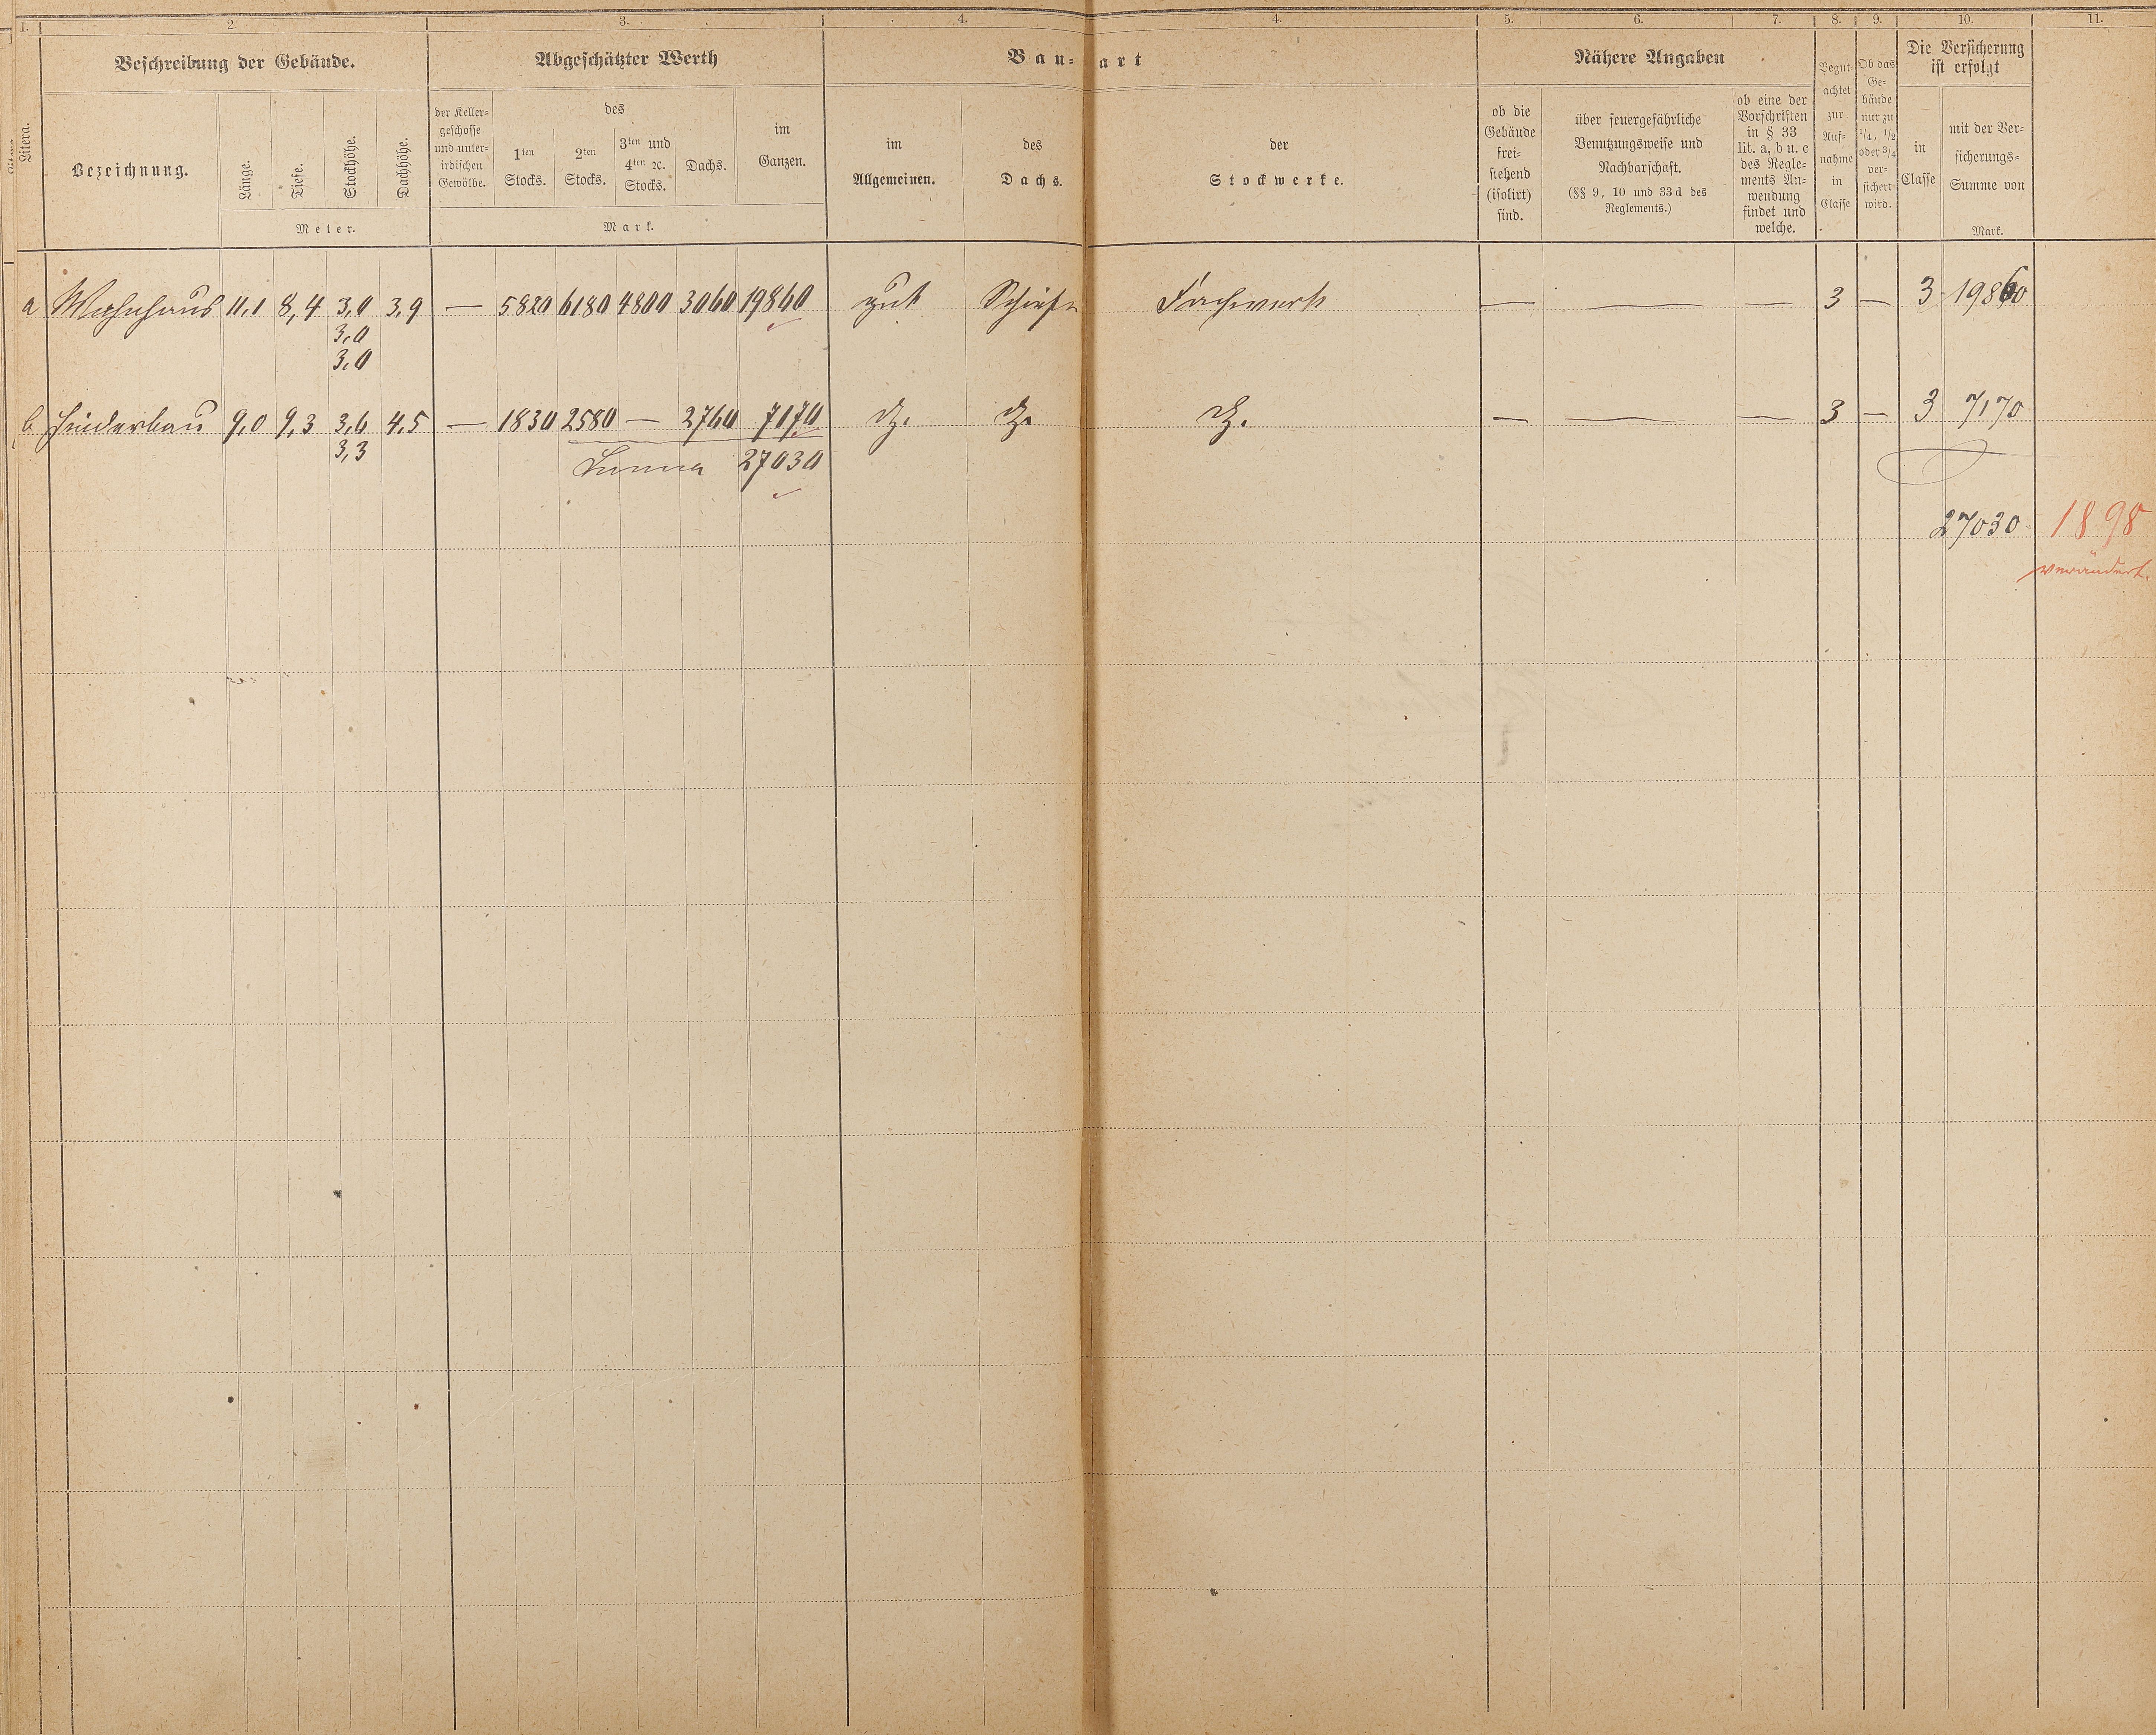 1. 2. 3. 4. 4. 5. 6. 7. 8. 9. 10. 11.
Litera.
Beschreibung der Gebäude.
Bezeichnung.
Länge.
Tiefe.
Stockhöhe.
Dachhöhe.
Meter.
Abgeschätzter Werth
der Keller-
geschosse
und unter-
irdischen
Gewölbe.
des
1ten
Stocks.
2ten
Stocks.
3ten und
4ten ꝛc.
Stocks.
Dachs.
im
Ganzen.
Mark.
Bau-art
im
Allgemeinen.
des
Dachs.
der
Stockwerke.
Nähere Angaben
ob die
Gebäude
frei-
stehend
(isolirt)
sind.
über feuergefährliche
Benutzungsweise und
Nachbarschaft.
(§§ 9, 10 und 33d des
Reglements.)
ob eine der
Vorschriften
in § 33
lit. a, b u. c
des Regle-
ments An-
wendung
findet und
welche.
Begut-
achtet
zur
Auf-
nahme
in
Classe
Ob das
Ge-
bäude
nur zu
1/4, 1/2
oder 3/4
ver-
sichert
wird.
Die Versicherung
ist erfolgt
in
Classe
mit der Ver-
sicherungs-
Summe von
Mark.
a Wohnhaus 11,1 8,4 3,0 3,9 — 5820 6180 4800 3060 19860 gut Schiefer Fachwerk — — — 3 — 3 19860
3,0
3,0
b Hinderbau 9,0 9,3 3,6 4,5 — 1830 2580 — 2760 7170 do. do. do. — — — 3 — 3 7170
3,3
Summa 27030
27030 1898
verändert.